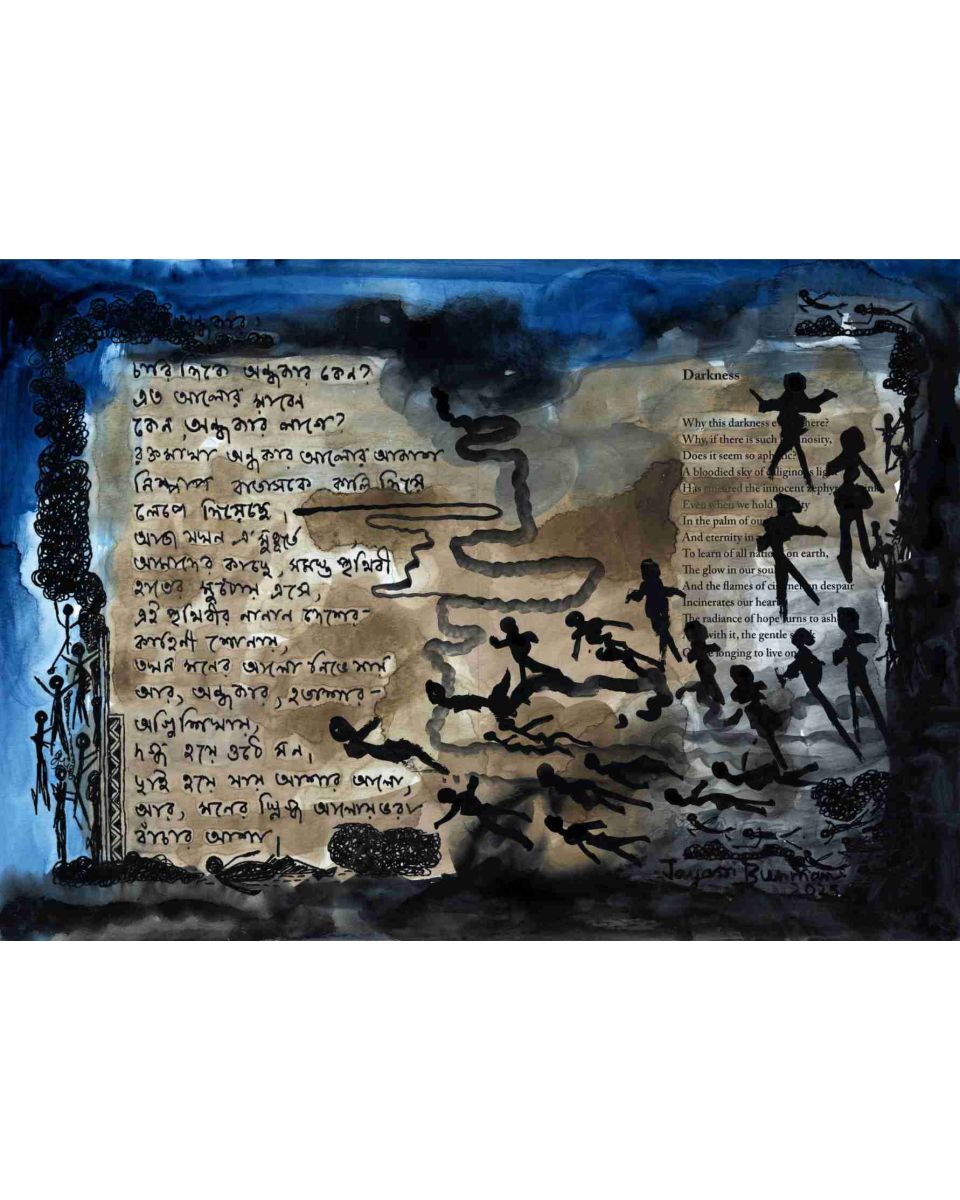 অন্ধকার,
চারিদিকে অন্ধকার কেন?
এত আলোর মাঝে
কেন, অন্ধকার লাগে?
রক্তমাখা অন্ধকার আলোর আকাশ
নিষ্পাপ বাতাসকে কালি দিয়ে
লেপে দিয়েছে।
আজ যখন এ মুহূর্তে
আমাদের কাছে, সমস্ত পৃথিবী
হাতের মুঠোয় এসে,
এই পৃথিবীর নানান দেশের-
কাহিনী শোনায়,
তখন মনের আলো নিভে যায়
আর, অন্ধকার, হতাশার-
অগ্নিশিখায়,
দগ্ধ হয়ে ওঠে মন,
ছাই হয়ে যায় আশার আলো,
আর, মনের স্নিগ্ধ আলোয় ভরা
বাঁচার আশা।
Darkness
Why this darkness
Why, if there is such
Does it seem so
A bloodied sky of
Has smeared the innocent zephyr
Even when we hold
In the palm of our
And eternity in
To learn of all nations on earth,
The glow in our soul
And the flames of despair
Incinerates our heart
The radiance of hope turns to ash
with it, the gentle
longing to live on
Jayasri Burman
2025